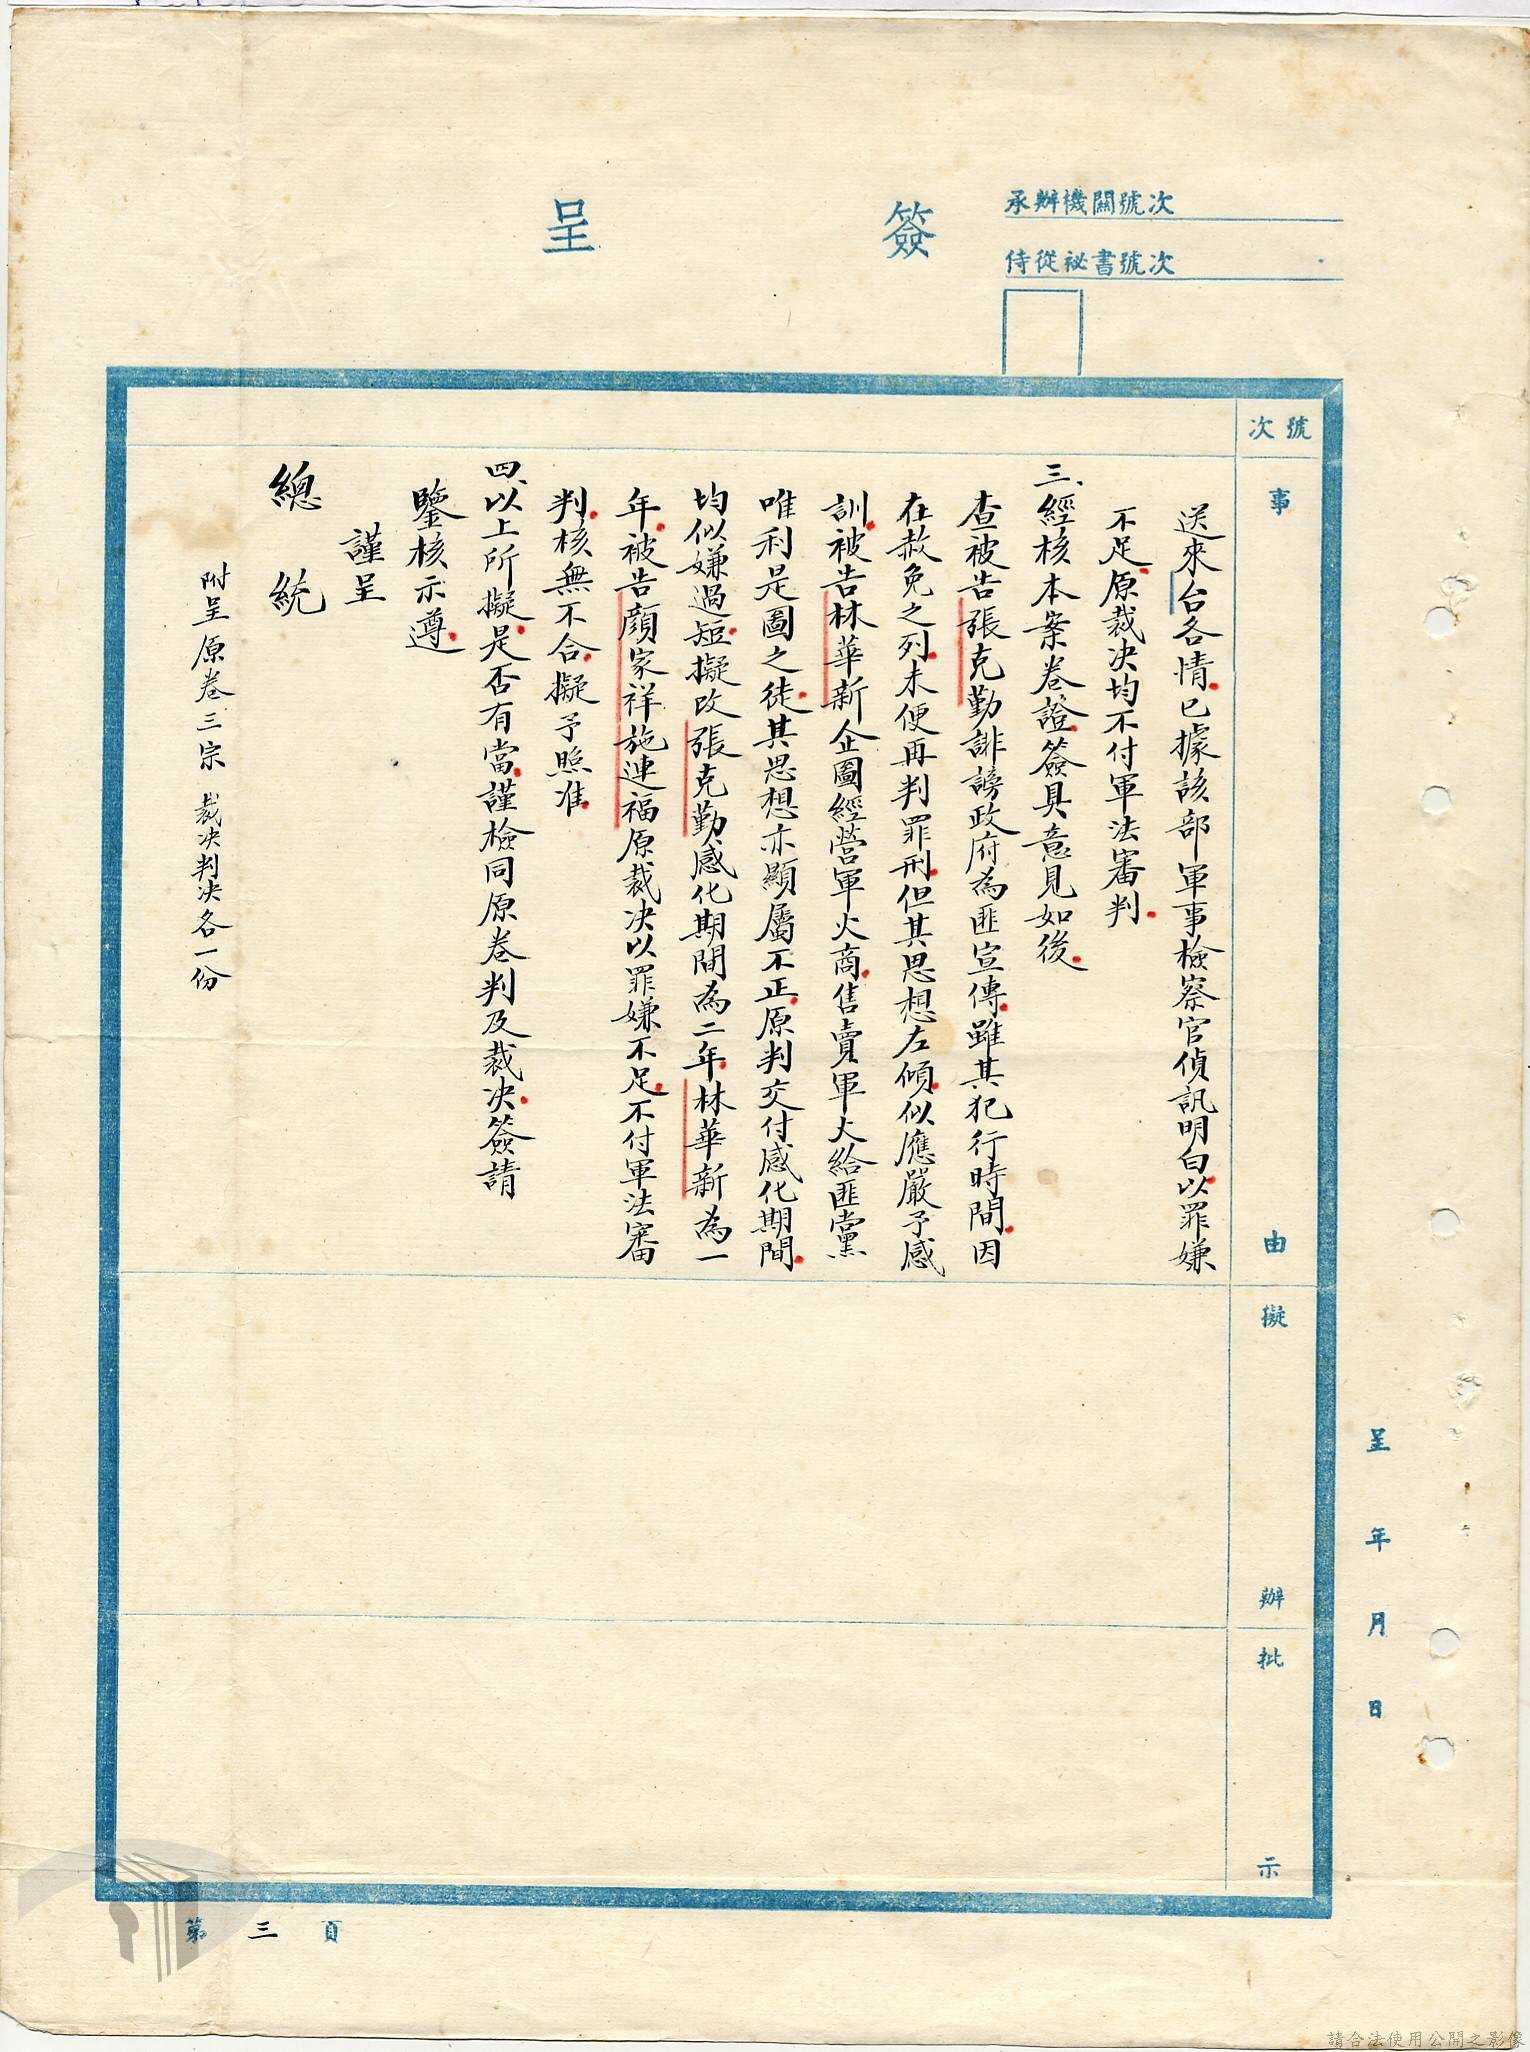 簽呈
承辦機關號次
侍從祕書號次
號次
事由
擬辦
批示
送來台各情已據該部軍事檢察官偵訊明白以罪嫌
不足原裁決均不付軍法審判
三、經核本案卷證簽具意見如後
查被告張克勤誹謗政府為匪宣傳雖其犯行時間因
在赦免之列未便再判罪刑但其思想左傾似應嚴予感
訓被告林華新企圖經營軍火商售賣軍火給匪黨
唯利是圖之徒其思想亦顯屬不正原判交付感化期間
均似嫌過短擬改張克勤感化期間為二年林華新為一
年被告顏家祥施連福原裁決以罪嫌不足不付軍法審
判核無不合擬予照准
四、以上所擬是否有當謹檢同原卷判及裁決簽請
鑒核示遵
謹呈
總統
附呈原卷三宗 裁決判決各一份
呈 年 月 日
第三頁
請合法使用公開之影像